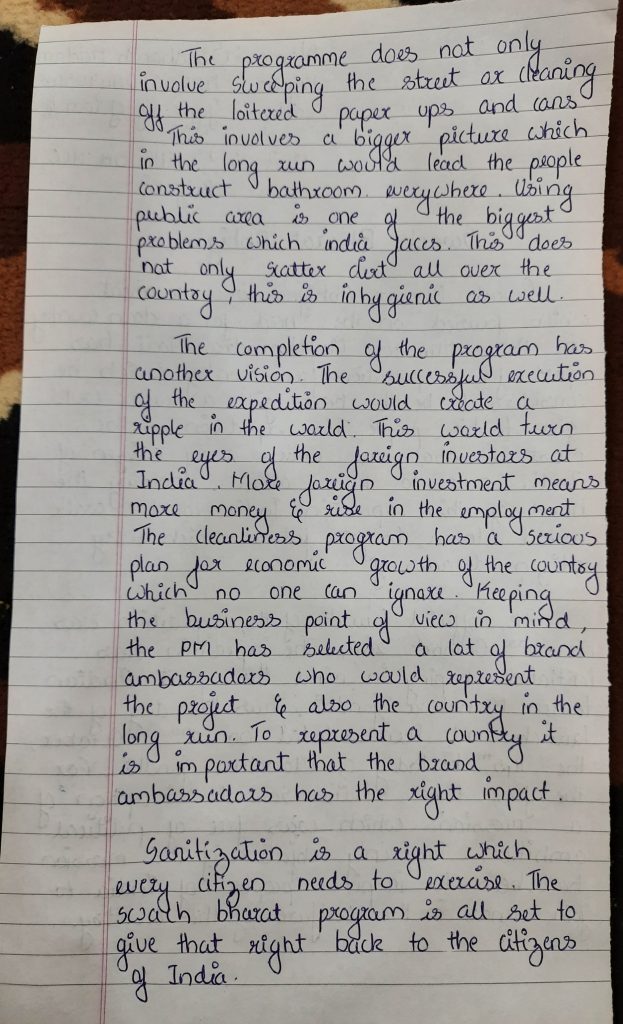 The programme does not only
involve sweeping the street or cleaning
off the loitered paper ups and cans
This involves a bigger picture which
in the long run would lead the people
construct bathroom everywhere. Using
public area is one of the biggest
problems which india faces. This does
not only scatter dirt all over the
country, this is inhygienic as well.
The completion of the program has
another vision. The successful execution
of the expedition would create a
ripple in the world. This world turn
the eyes of the foreign investors at
India. More foreign investment means
more money & rise in the employment
The cleanliness program has a serious
plan for economic growth of the country
which no one can ignore. Keeping
the business point of view in mind,
the PM has selected a lot of brand
ambassadors who would represent
the project & also the country in the
long run. To represent a country it
is important that the brand
ambassadors has the right impact.
Sanitization is a right which
every citizen needs to exercise. The
swath bharat program is all set to
give that right back to the citizens
of India.